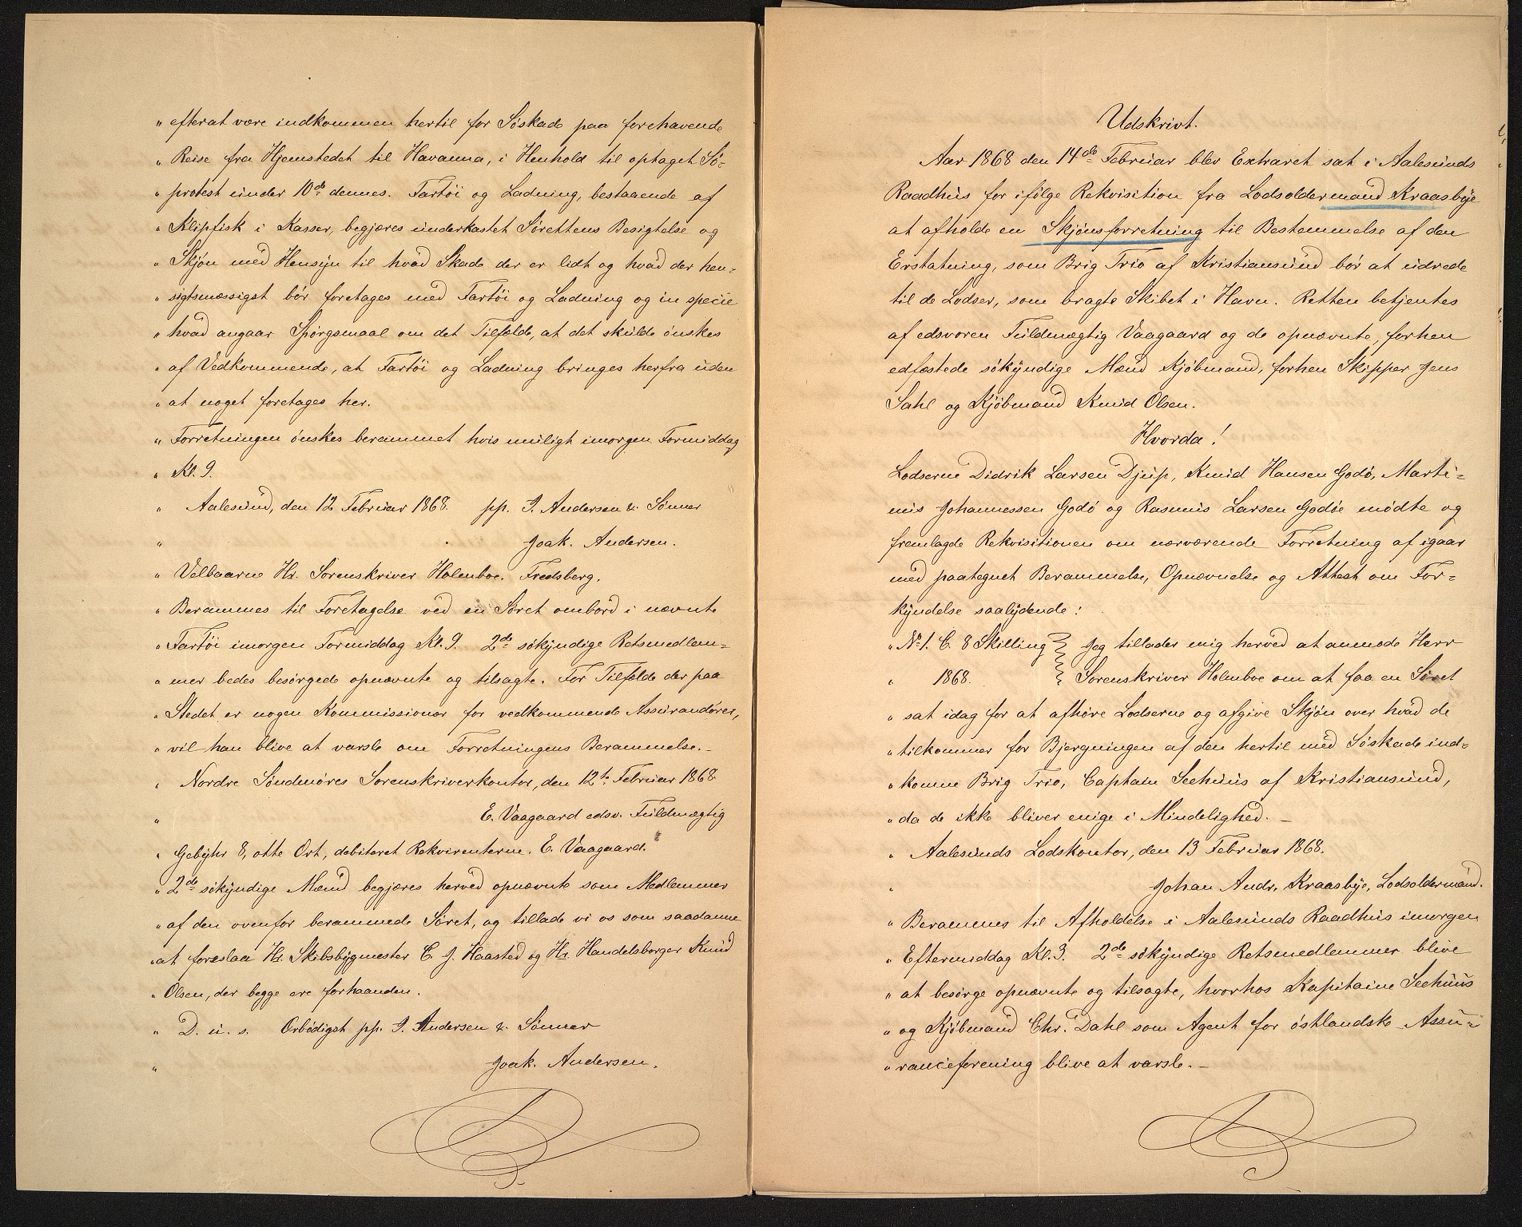 „ efterat være indkommen hertil for Søskade paa forehavende
„ Reise fra Hjemstedet til Havanna, i Henhold til optaget Sø-
„ protest under 10de dennes. Fartøi og Ladning, bestaaende af
„ Klipfisk i Kasser, begjæres underkastet Sørettens Besigtelse og
„ Skjøn med Hensyn til hvad Skade der er lidt og hvad der hen-
„ sigtsmæssigst bør foretages med Fartøi og Ladning og in specie
„ hvad angaar Spørgsmaal om det Tilfælde, at det skulde ønskes
„ af Vedkommende, at Fartøi og Ladning bringes herfra uden
„ at noget foretages her.
„ Forretningen ønskes berammet hvis muligt imorgen Formiddag
„ Kl. 9.
„ Aalesund, den 12 Februar 1868. pp. I. Andersen & Sønner
„ Joak. Andersen.
„ Velbaarne Hr. Sorenskriver Holmboe. Fredsberg.
„ Berammes til Foretagelse ved en Søret ombord i nævnte
„ Fartøi imorgen Formiddag Kl. 9. 2de søkyndige Retsmedlem-
„ mer bedes besørgede opnævnte og tilsagte. For Tilfælde der paa
„ Stedet er nogen Kommissionær for vedkommende Assurandører,
„ vil han blive at varsle om Forretningens Berammelse.-
„ Nordre Søndmøres Sorenskriverkontor, den 12te Februar 1868.
„ E. Vaagaard edsv. Fuldmægtig
„ Gebyhr 8, otte Ort, debiteret Rekvirenterne. E. Vaagaard.
„ 2de søkyndige Mænd begjæres herved opnævnte som Medlemmer
„ af den ovenfor berammede Søret, og tillade vi os som saadanne
„ at foreslaa Hr. Skibsbygmester C. J. Haasted og Hr. Handelsborger Knud
„ Olsen, der begge ere forhaanden.
„ D. u. s. Ørbødigst pp. I. Andersen & Sønner
„ Joak. Andersen.
Udskrivt.
Aar 1868 den 14de Februar blev Extraret sat i Aalesunds
Raadhus for ifølge Rekvisition fra Lodsoldermand Kraasbye
at afholde en Skjønsforretning til Bestemmelse af den
Erstatning, som Brig Trio af Kristiansund bør at udrede
til de Lodser, som bragte Skibet i Havn. Retten betjentes
af edsvoren Fuldmægtig Vaagaard og de opnævnte, forhen
edfæstede søkyndige Mænd Kjøbmand, forhen Skipper Jens
Sahl og Kjøbmand Knud Olsen.
Hvorda!
Lodserne Didrik Larsen Djup, Knud Hansen Godø, Marti-
nus Johannessen Godø og Rasmus Larsen Godøe mødte og
fremlagde Rekvisitionen om nærværende Forretning af igaar
med paategnet Berammelse, Opnævnelse og Attest om For-
kyndelse saalydende:
„ No 1. C. 8 Skilling Jeg tillader mig herved at anmode Herr
„ 1868. Sorenskriver Holmboe om at faa en Søret
„ sat idag for at afhøre Lodserne og afgive Skjøn over hvad de
„ tilkommer for Bjergningen af den hertil med Søskade ind-
„ komne Brig Trio, Captain Seehuus af Kristiansund,
„ da de ikke bliver enige i Mindelighed.-
„ Aalesunds Lodskontor, den 13 Februar 1868.
„ Johan Andr. Kraasbye, Lodsoldermand.
„ Berammes til Afholdelse i Aalesunds Raadhus imorgen
„ Eftermiddag Kl. 3. 2de søkyndige Retsmedlemmer blive
„ at besørge opnævnte og tilsagte, hvorhos Kapitaine Seehuus
„ og Kjøbmand Chr. Dahl som Agent for østlandske Assu-
„ ranceforening blive at varsle.-